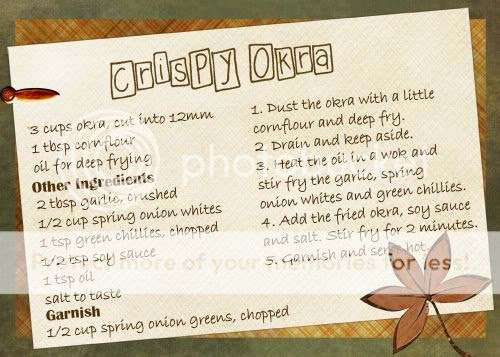 Crispy Okra
3 cups okra, cut into 12mm
1 tbsp cornflour
oil for deep frying
Other Ingredients
2 tbsp garlic, crushed
1/2 cup spring onion whites
1 tsp green chillies, chopped
1/2 tsp soy sauce
1 tsp oil
salt to taste
Garnish
1/2 cup spring onion greens, chopped
1. Dust the okra with a little
cornflour and deep fry.
2. Drain and keep aside.
3. Heat the oil in a wok and
stir fry the garlic, spring
onion whites and green chillies.
4. Add the fried okra, soy sauce
and salt. Stir fry for 2 minutes.
5. Garnish and serve hot.
Protect more of your memories for less!